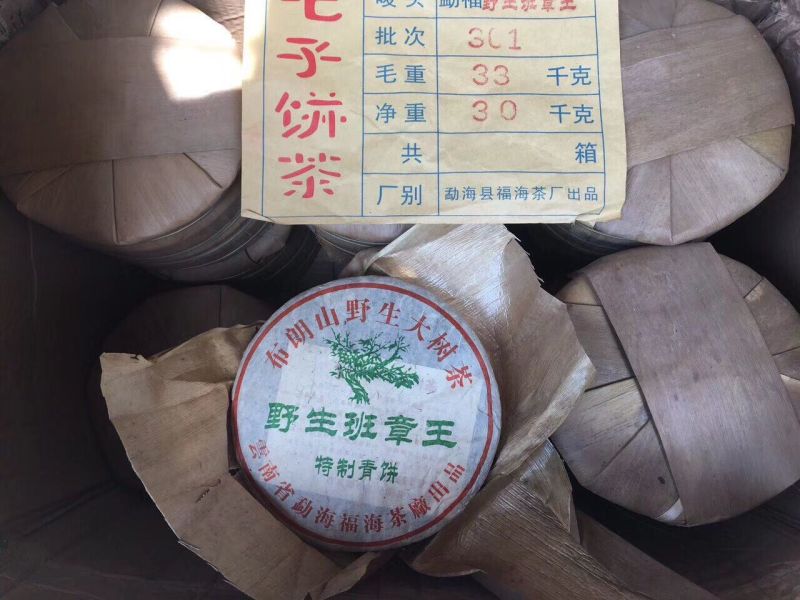 七子饼茶
唛头 勐福野生班章王
批次 301
毛重 33 千克
净重 30 千克
共 箱
厂别 勐海县福海茶厂出品
布朗山野生大树茶
野生班章王
特制青饼
雲南省勐海福海茶廠出品